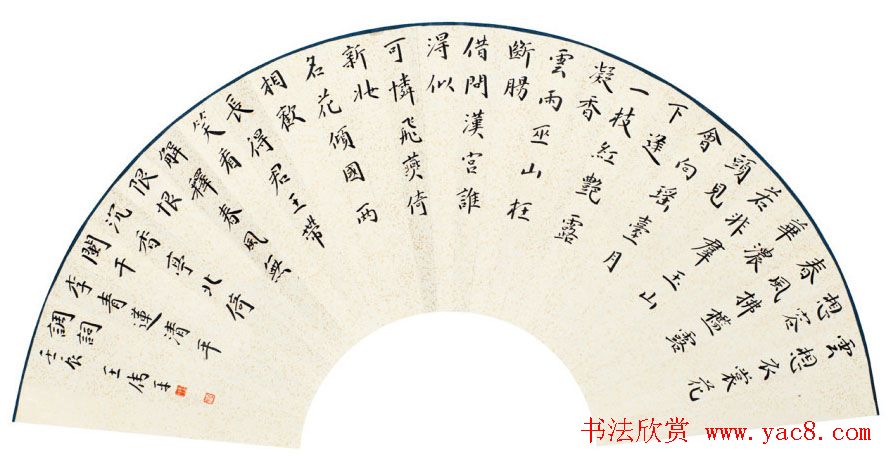 雲想衣裳花
想容
春風拂檻露
華濃
若非群玉山
頭見
會向瑤臺月
下逢
一枝紅艷露
凝香
雲雨巫山枉
斷腸
借問漢宮誰
得似
可憐飛燕倚
新妝
名花傾國兩
相歡
長得君王帶
笑看
解釋春風無
限恨
沉香亭北倚
闌干
李青蓮清平
調詞
壬辰 王偉平
书法欣赏 www.yac8.com